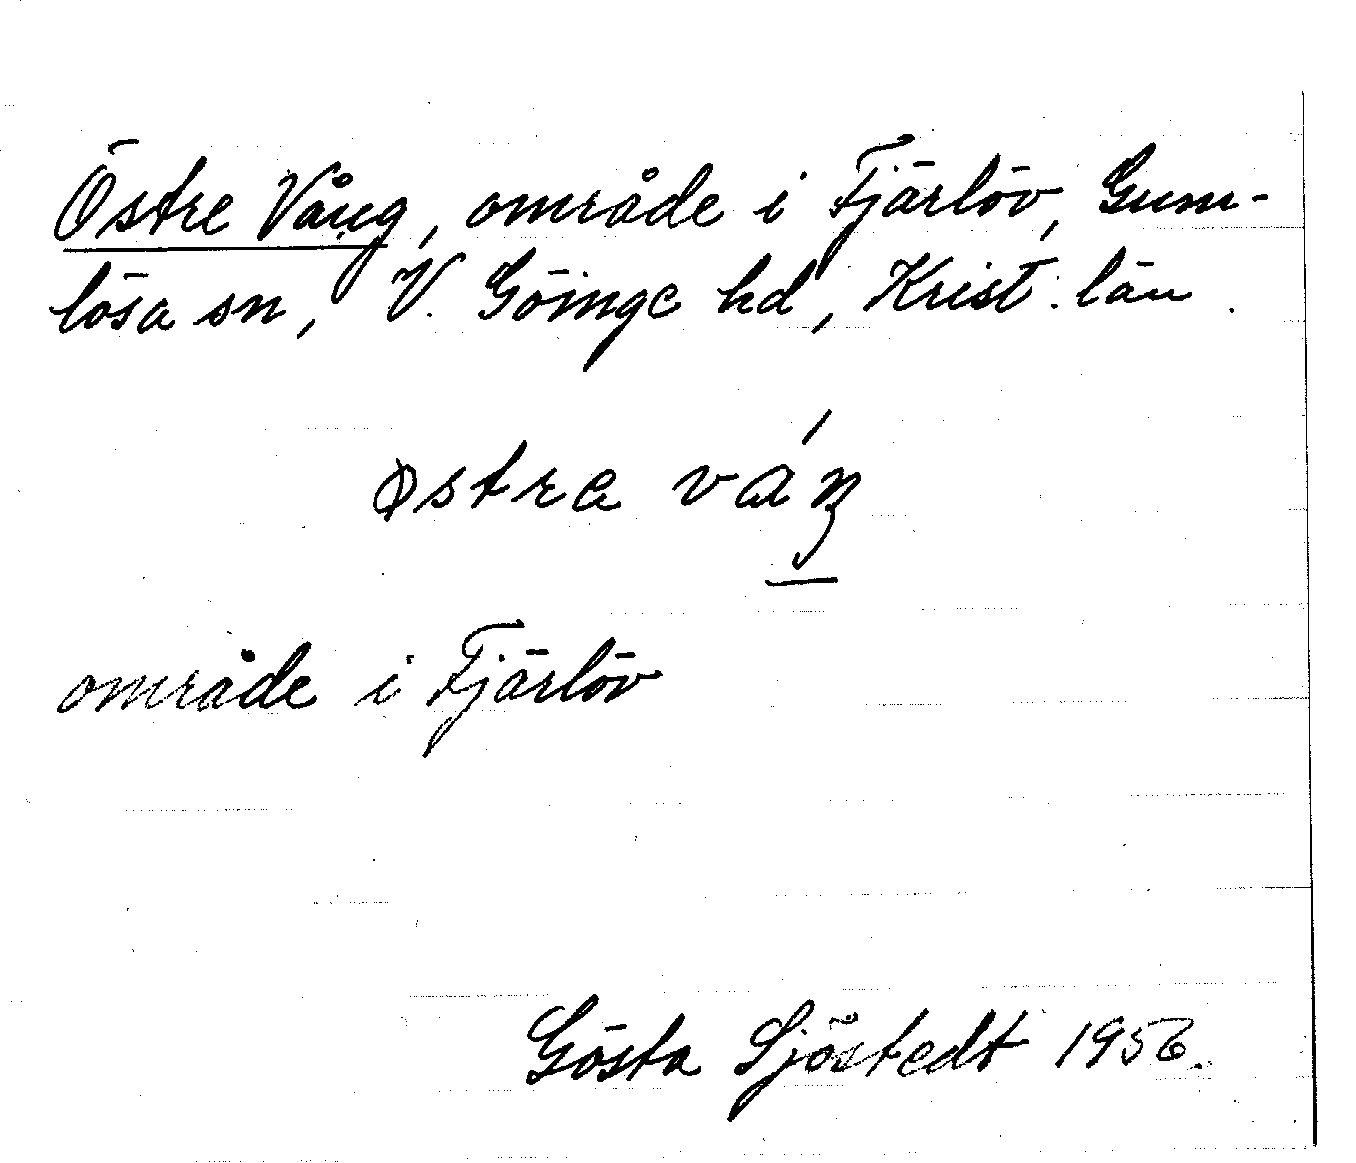 Östre Vång, område i Fjärlöv, Gum-
lösa sn, V. Göinge hd, Krist. län.
østre váŋ
område i Fjärlöv
Gösta Sjöstedt 1956.